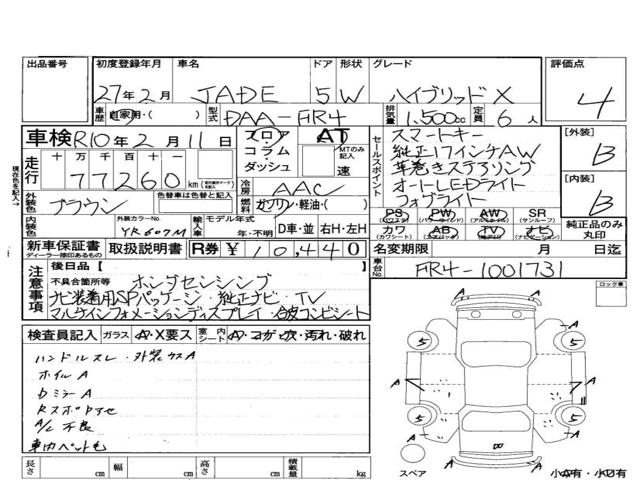 出品番号 初度登録年月 車名 ドア 形状 グレード 評価点
27年2月 JADE 5 W ハイブリッドX 4
車歴 自家用・( ) 型式 DAA-FR4 排気量 1,500cc 定員 6人
車検 R10年2月11日 フロア・コラム・ダッシュ AT MTのみ記入 速
走行 十 万 千 百 十 一
77260 km
冷房 AAC
燃料 ガソリン・軽油・( )
現在色を記入→
外装色 ブラウン
色替車は色替と記入
外装カラーNo. YR607M
内装色
輸入車 モデル年式 年・不明 D車・並 右H・左H
セールスポイント
スマートキー
純正17インチAW
革巻きステアリング
オートLEDライト
フォグライト
[外装] B
[内装] B
PS PW AW SR
(パワステ) (パワーウインド) (アルミホイール) (サンルーフ)
カワ AB TV ナビ
(カワシート) (エアバッグ) (テレビ) (ナビゲーション)
純正品のみ丸印
新車保証書 ディーラー捺印あるもの 取扱説明書 R券 ¥10,440 名変期限 月 日迄
注意事項
後日品 [ ]
不具合箇所等 ホンダセンシング
ナビ装着用SPパッケージ・純正ナビ・TV
マルチインフォメーションディスプレイ・合皮コンビシート
車台No. FR4-1001731
ロック車
検査員記入 ガラス A・X要ス 室内シート A・コガシ・穴・汚れ・破れ
ハンドルスレ・外装キズA
ホイルA
DミラーA
A/C不良
車内ペット毛
5 5 5 5
A A A A A A A A
スペア
小A有・小U有
長さ cm 幅 cm 高さ cm 積載量 kg